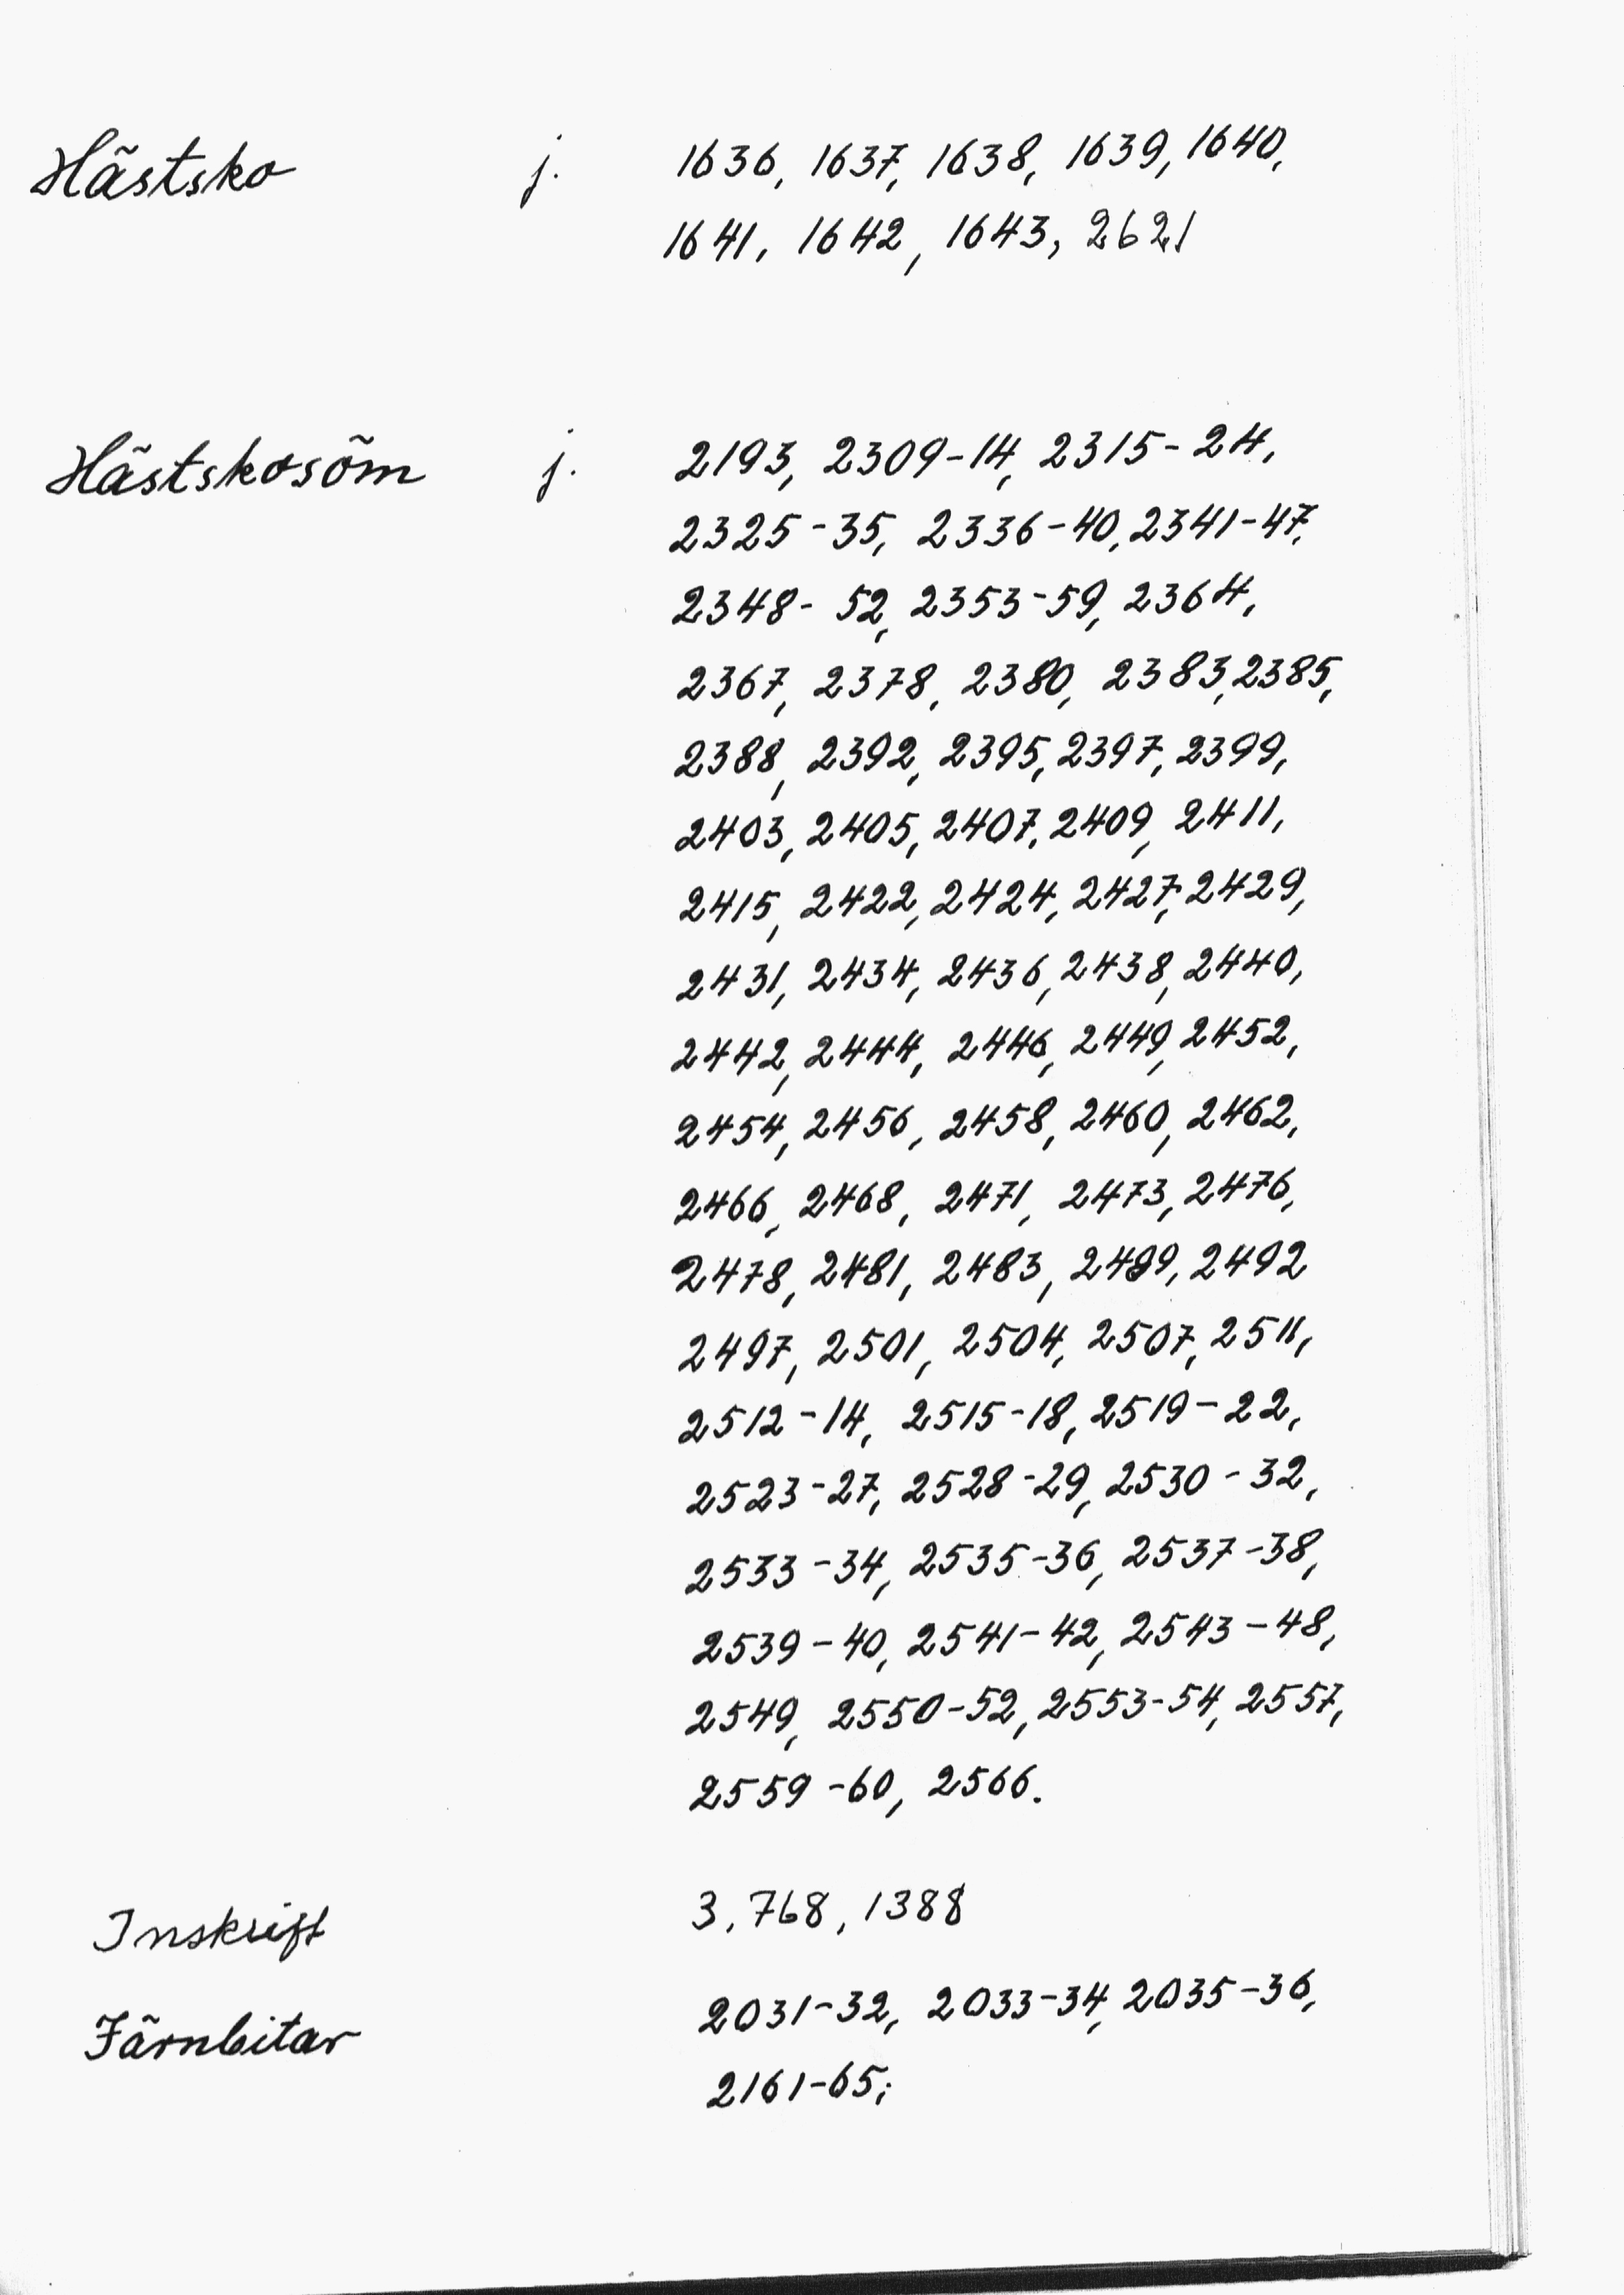 Hästsko j. 1636, 1637, 1638, 1639, 1640,
1641, 1642, 1643, 2621
Hästskosöm j. 2193, 2309-14, 2315-24,
2325-35, 2336-40, 2341-47,
2348-52, 2353-59, 2364,
2367, 2378, 2380, 2383, 2385,
2388, 2392, 2395, 2397, 2399,
2403, 2405, 2407, 2409, 2411,
2415, 2422, 2424, 2427, 2429,
2431, 2434, 2436, 2438, 2440,
2442, 2444, 2446, 2449, 2452,
2454, 2456, 2458, 2460, 2462,
2466, 2468, 2471, 2473, 2476,
2478, 2481, 2483, 2489, 2492
2497, 2501, 2504, 2507, 2511,
2512-14, 2515-18, 2519-22,
2523-27, 2528-29, 2530-32,
2533-34, 2535-36, 2537-38,
2539-40, 2541-42, 2543-48,
2549, 2550-52, 2553-54, 2557,
2559-60, 2566.
Inskrift 3, 768, 1388
Järnbitar 2031-32, 2033-34, 2035-36,
2161-65;